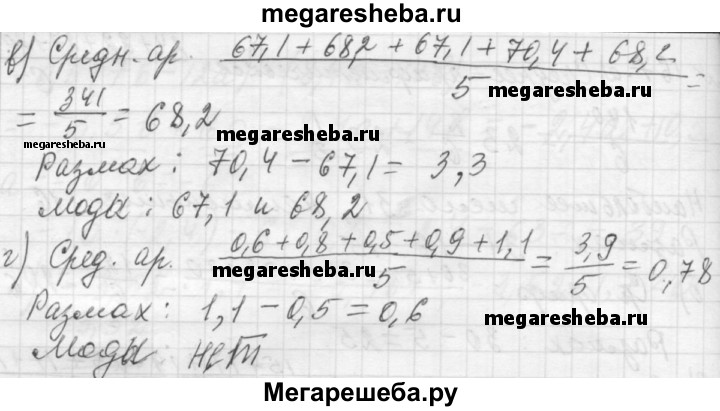 megaresheba.ru
в) Средн. ар. (67,1 + 68,2 + 67,1 + 70,4 + 68,2) / 5 =
= 341 / 5 = 68,2
megaresheba.ru
megaresheba.ru
megaresheba.ru
Размах: 70,4 - 67,1 = 3,3
Моды: 67,1 и 68,2
г) Сред. ар. (0,6 + 0,8 + 0,5 + 0,9 + 1,1) / 5 = 3,9 / 5 = 0,78
megaresheba.ru
Размах: 1,1 - 0,5 = 0,6
megaresheba.ru
Моды нет
Мегарешеба.ру